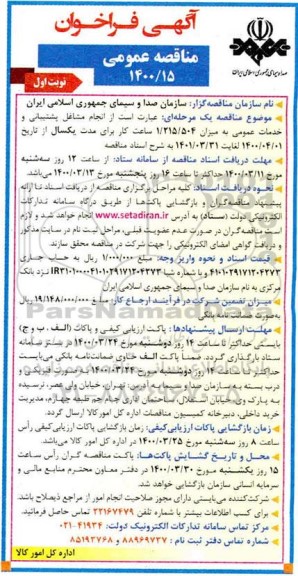 آگهی فراخوان
مناقصه عمومی
۱۴۰۰/۱۵
نوبت اول
صدا و سیمای جمهوری اسلامی ایران
نام سازمان مناقصه‌گزار: سازمان صدا و سیمای جمهوری اسلامی ایران
موضوع مناقصه یک مرحله‌ای: عبارت است از انجام مشاغل پشتیبانی و
خدمات عمومی به میزان ۱/۲۱۵/۵۰۴ ساعت کار برای مدت یکسال از تاریخ
۱۴۰۰/۰۴/۰۱ لغایت ۱۴۰۱/۰۳/۳۱ به شرح اسناد مناقصه
مهلت دریافت اسناد مناقصه از سامانه ستاد: از ساعت ۱۲ روز سه‌شنبه
مورخ ۱۴۰۰/۰۳/۱۱ حداکثر تا ساعت ۱۶ روز پنجشنبه مورخ ۱۴۰۰/۰۳/۱۳ می‌باشد.
نحوه دریافت اسناد: کلیه مراحل برگزاری مناقصه از دریافت اسناد تا ارائه
پیشنهاد مناقصه‌گران و بازگشایی پاکت‌ها از طریق درگاه سامانه تدارکات
الکترونیکی دولت (ستاد) به آدرس www.setadiran.ir انجام خواهد شد و لازم
است مناقصه‌گران در صورت عدم عضویت قبلی، مراحل ثبت نام در سایت مذکور
و دریافت گواهی امضای الکترونیکی را جهت شرکت در مناقصه محقق سازند.
قیمت اسناد و نحوه واریز وجه: مبلغ ۱/۰۰۰/۰۰۰ ریال به حساب جاری
نزد بانک
مرکزی به نام سازمان صدا و سیمای جمهوری اسلامی ایران
میزان تضمین شرکت در فرآیند ارجاع کار: مبلغ ۱۹/۱۴۸/۰۰۰/۰۰۰ ریال
به صورت ضمانت نامه بانکی
مهلت ارسال پیشنهادها: پاکت ارزیابی کیفی و پاکات (الف، ب و ج)
بایستی حداکثر تا ساعت ۱۴ روز دوشنبه مورخ ۱۴۰۰/۰۳/۲۴ در بستر سامانه
ستاد بارگذاری گردد. ضمناً پاکت الف حاوی ضمانت‌نامه بانکی می‌بایست
حداکثر تا ساعت ۱۴ روز دوشنبه مورخ ۱۴۰۰/۰۳/۲۴ به صورت فیزیکی و
درب بسته به سازمان صدا و سیما به نشانی: تهران خیابان ولی عصر، نرسیده
به پارک وی، خیابان استقلال، ساختمان اداری جام جم طبقه چهارم، مدیریت
خرید داخلی، دبیرخانه کمیسیون مناقصات اداره کل امور کالا ارسال گردد.
زمان بازگشایی پاکات ارزیابی‌کیفی: زمان بازگشایی پاکات ارزیابی‌کیفی رأس
ساعت ۸ روز سه‌شنبه مورخ ۱۴۰۰/۰۳/۲۵ در اداره کل امور کالا می‌باشد.
محل و تاریخ گشایش پاکت‌ها: پاکت مناقصه گران رأس ساعت
۱۵ روز یکشنبه مورخ ۱۴۰۰/۰۳/۳۰ در دفتر معاون محترم منابع مالی و
سرمایه انسانی سازمان بازگشایی خواهد شد.
شرکت‌کننده می‌بایستی دارای مجوز صلاحیت انجام امور از مراجع ذیصلاح باشد.
برای کسب اطلاعات بیشتر با شماره تلفن ۲۲۱۶۷۴۷۹ تماس حاصل فرمائید.
مرکز تماس سامانه تدارکات الکترونیک دولت: ۴۱۹۳۴-۰۲۱
شماره تماس دفتر ثبت نام : ۸۸۹۶۹۷۳۷ و ۸۵۱۹۳۷۶۸
اداره کل امور کالا